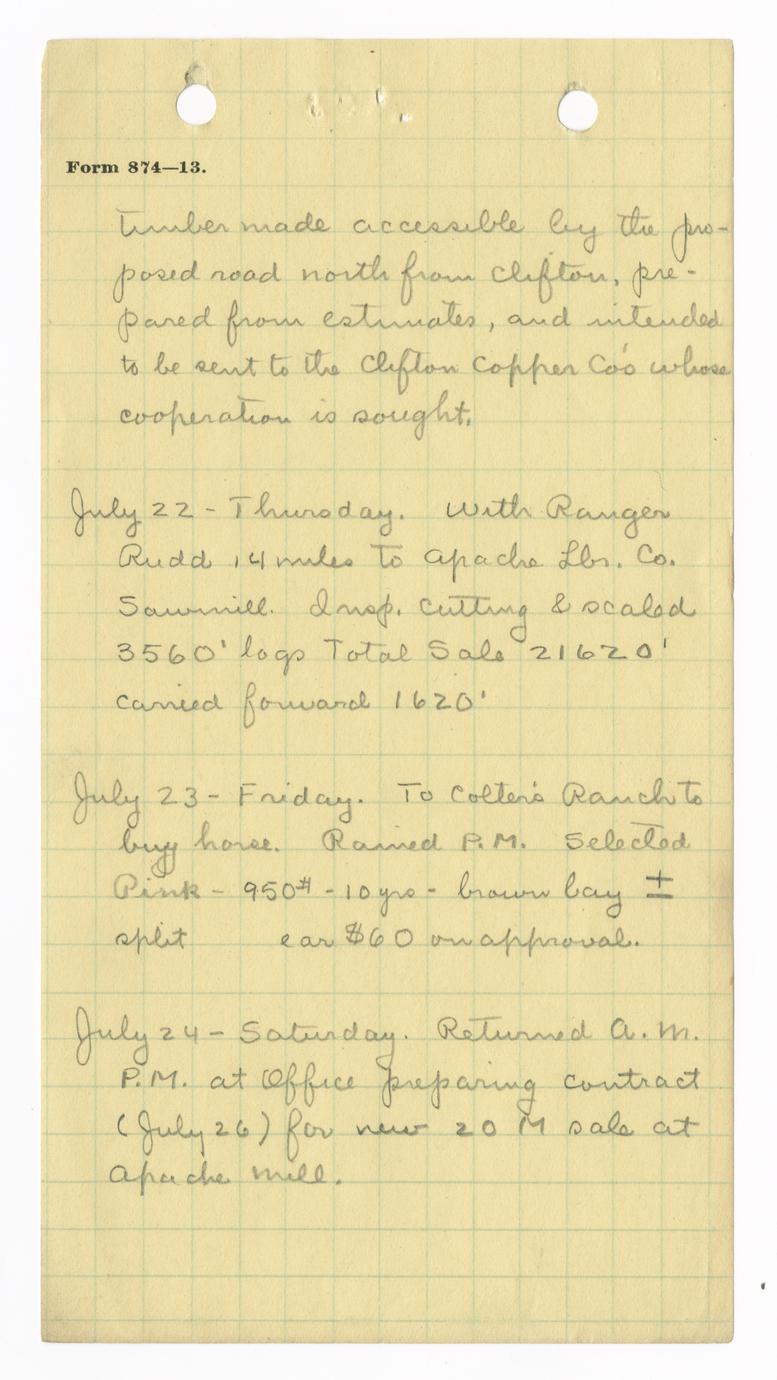 Form 874—13.
timber made accessible by the pro-
posed road north from Clifton, pre-
pared from estimates, and intended
to be sent to the Clifton Copper Co's whose
cooperation is sought.
July 22 - Thursday. With Ranger
Rudd 14 miles to Apache Lbr. Co.
Sawmill. Insp. cutting & scaled
3560' logs Total Sale 21620'
carried forward 1620'
July 23 - Friday. To Colter's Ranch to
buy horse. Rained P.M. Selected
Pink - 950# - 10 yrs - brown bay ±
split ear $60 on approval.
July 24 - Saturday. Returned A.M.
P.M. at Office preparing contract
(July 26) for new 20 M sale at
Apache Mill.